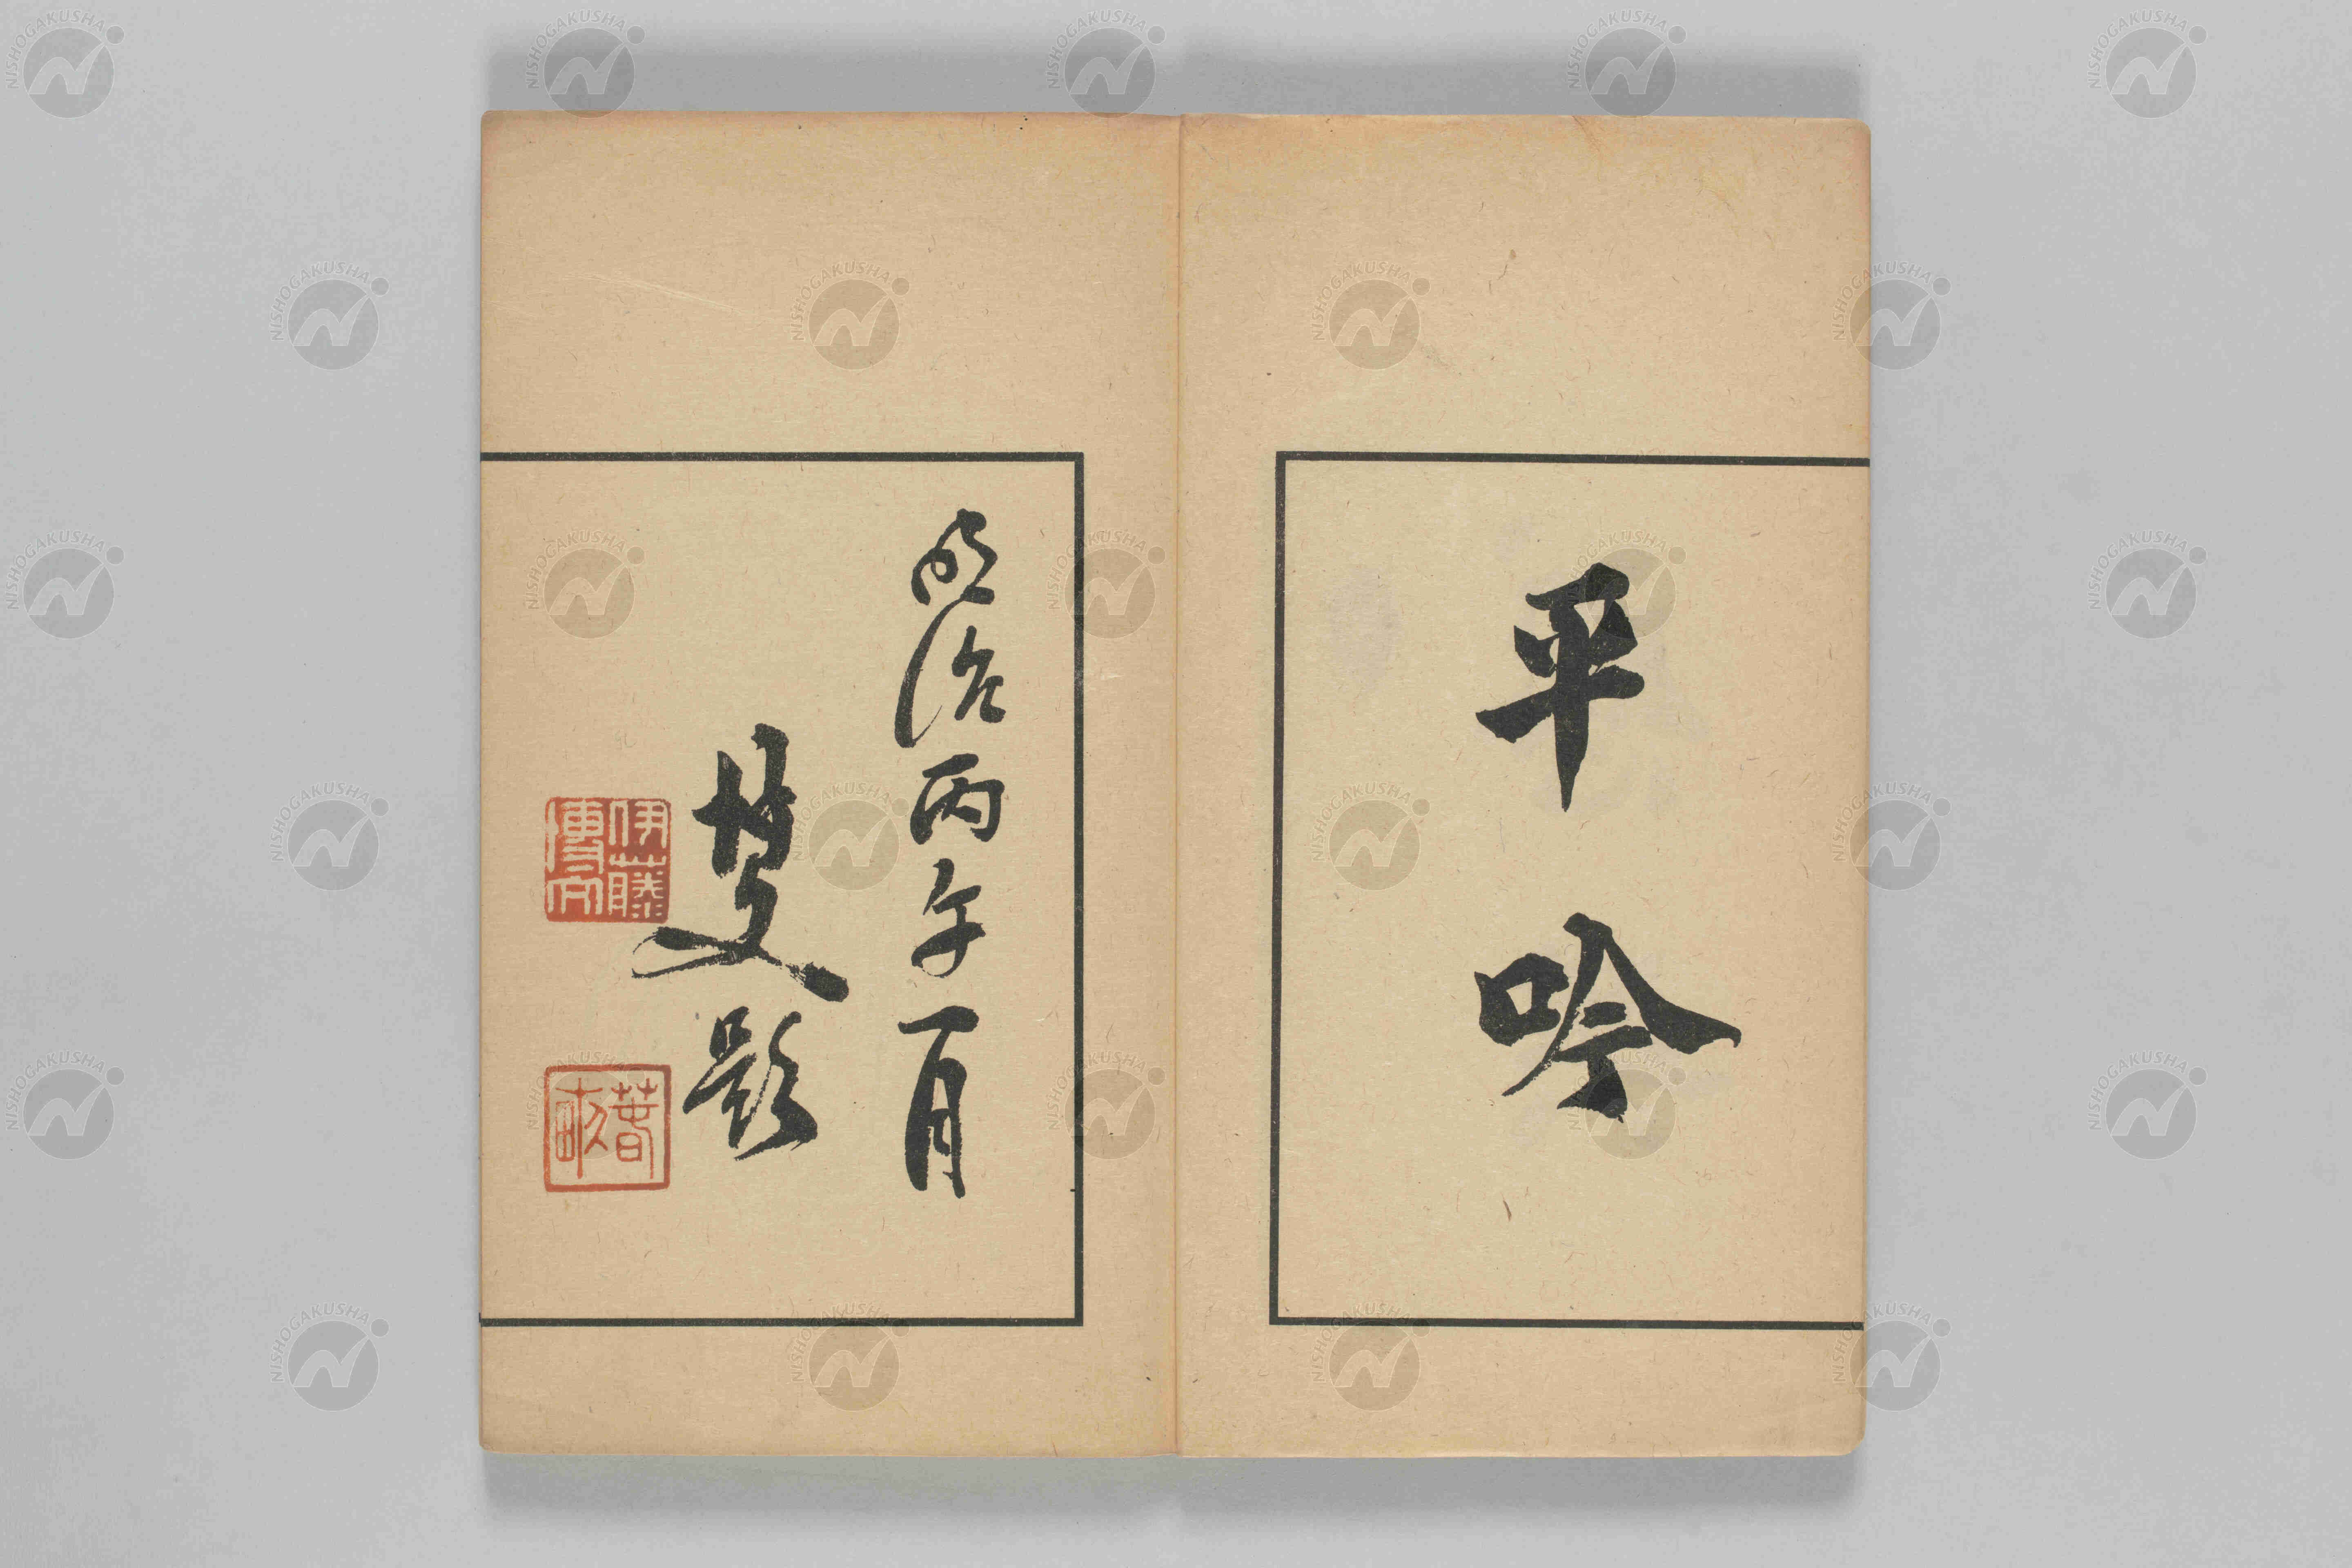 平吟
明治丙午一月
博文題
伊藤
博文
春畝
NISHOGAKUSHA